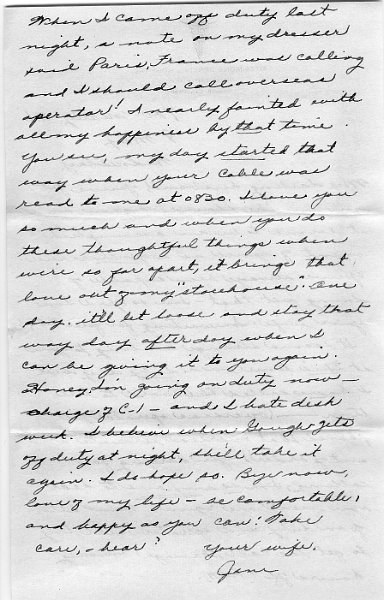 When I came off duty last
night, a note on my dresser
said Paris, France was calling
and I should call overseas
operator! I nearly fainted with
all my happiness by that time.
You see, my day started that
way when your cable was
read to me at 0830. I love you
so much and when you do
these thoughtful things when
we're so far apart, it brings that
love out of my "storehouse". One
day it'll let loose and stay that
way day after day when I
can be giving it to you again.
Honey, I'm going on duty now —
charge of C-1 — and I hate desk
work. I believe when Gough gets
off duty at night, she'll take it
again. I do hope so. Bye now,
love of my life — be comfortable,
and happy as you can! Take
care, - hear? Your wife,